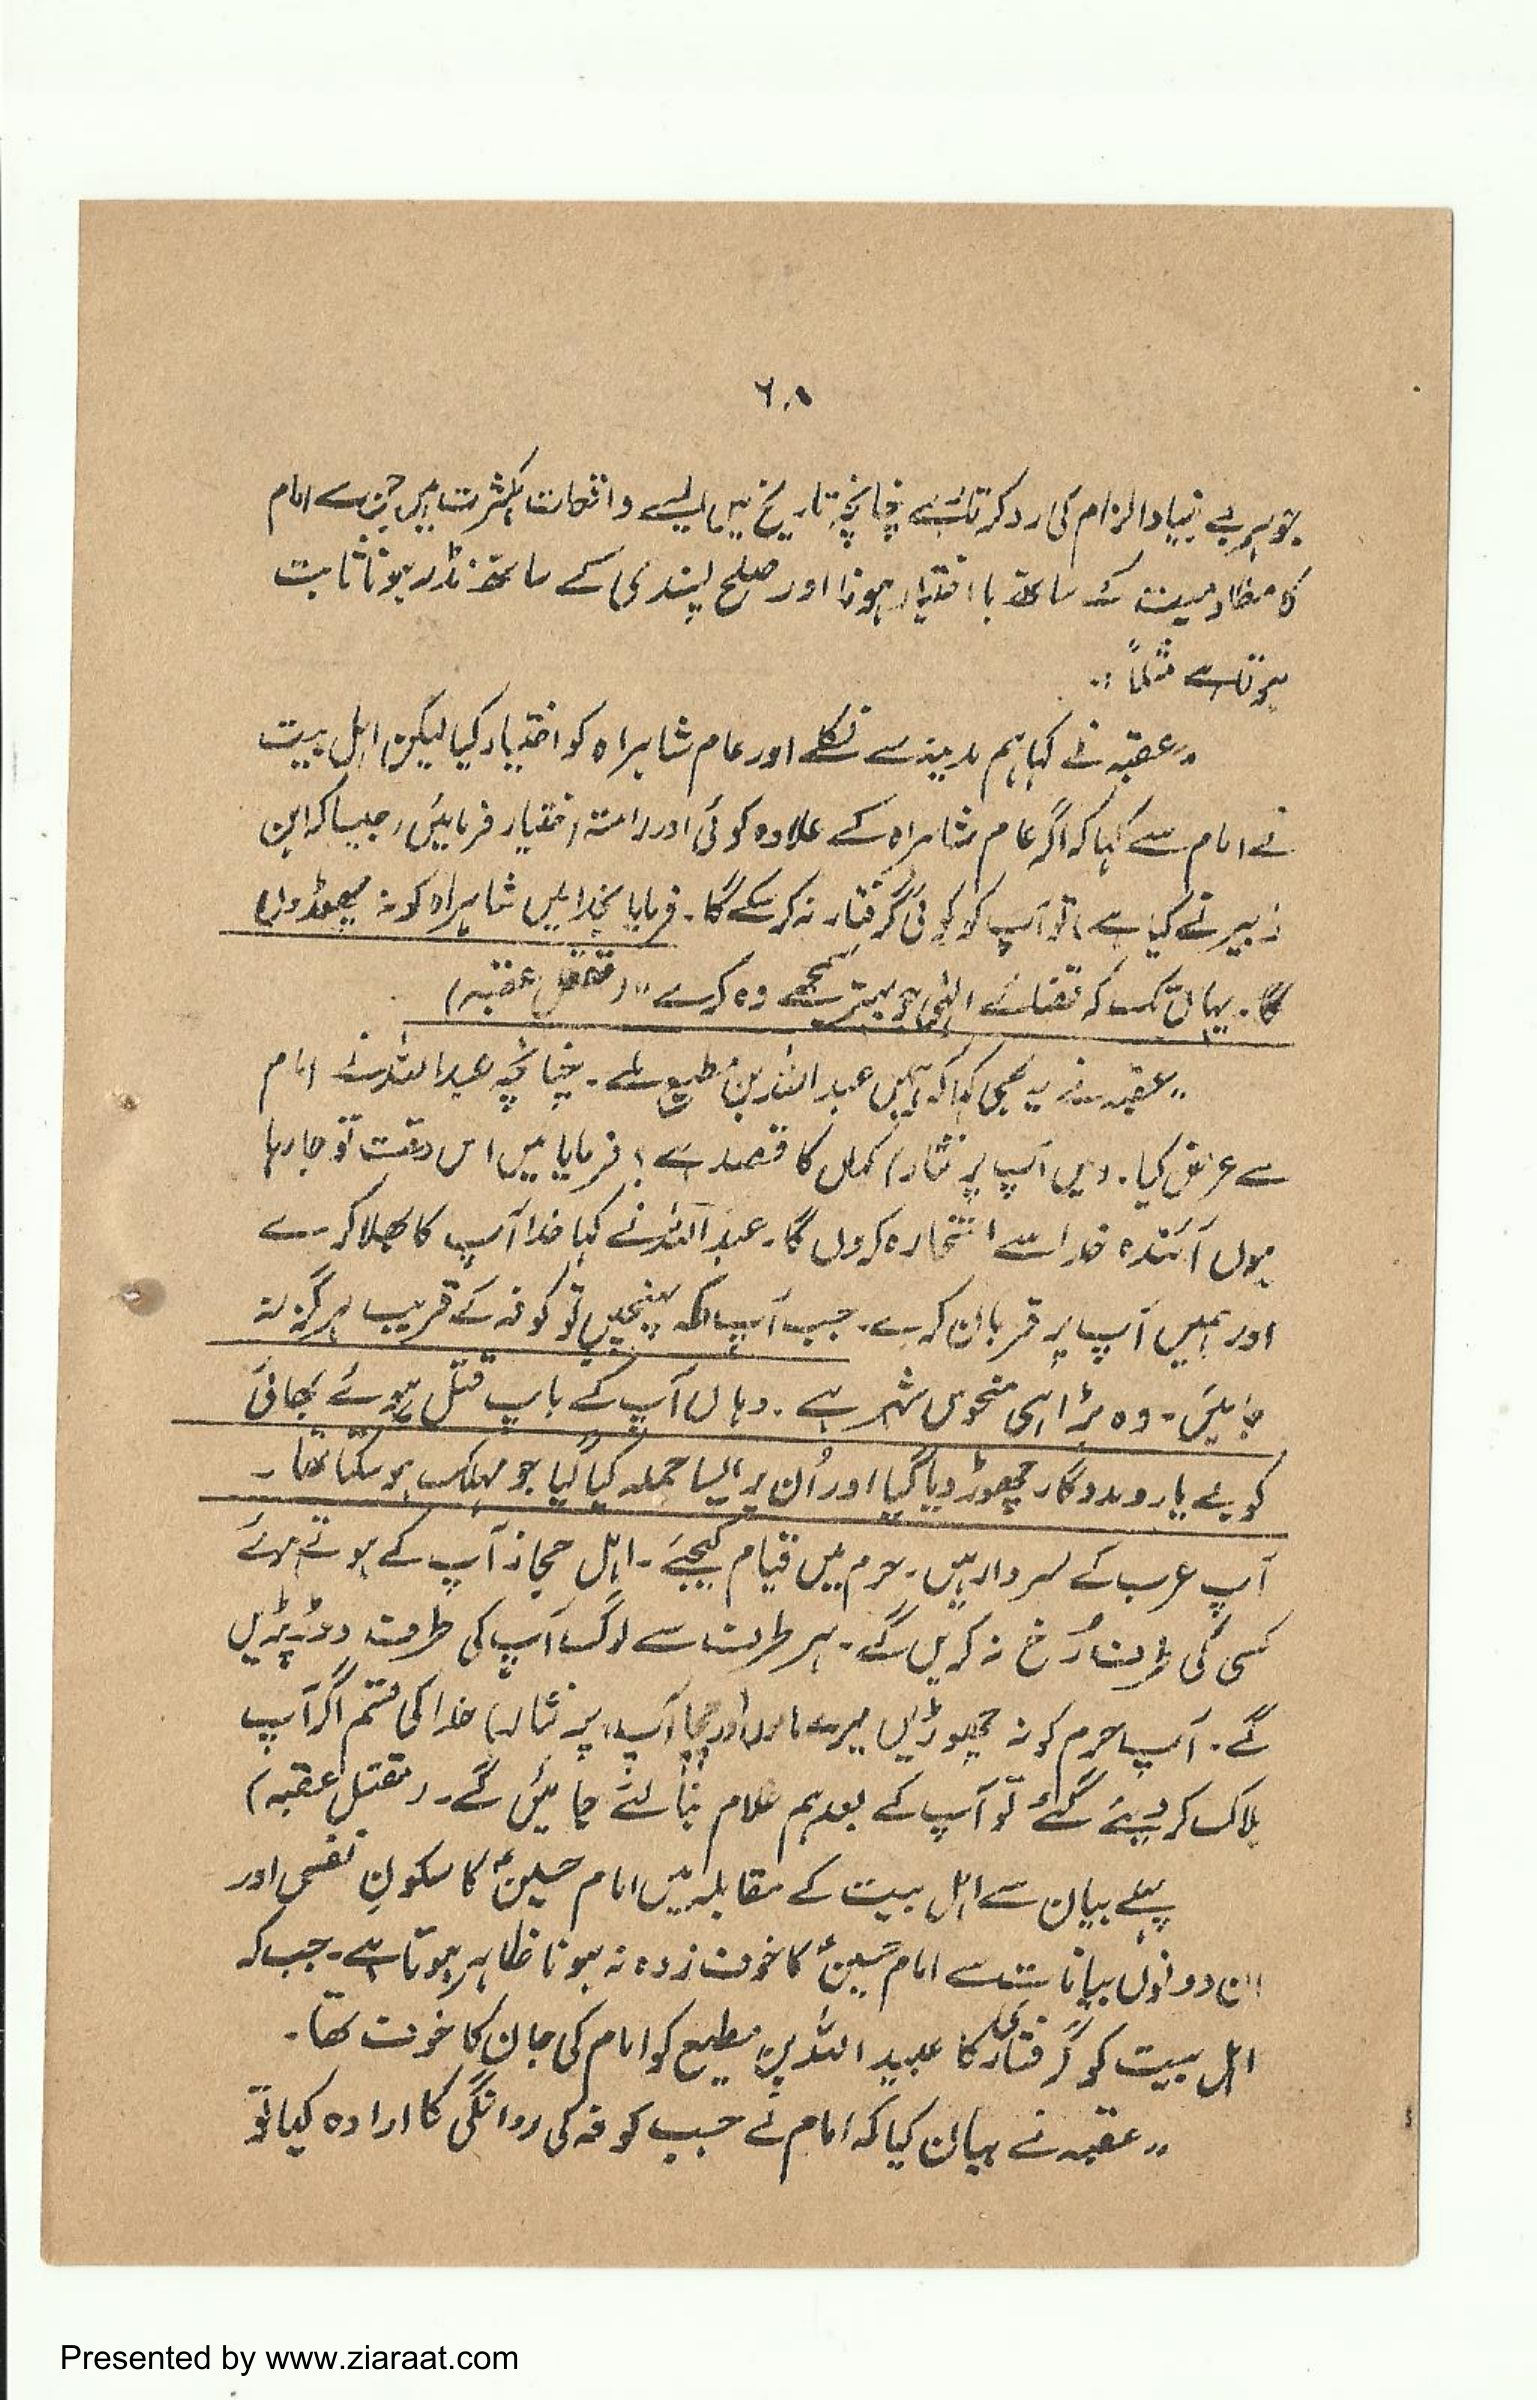 ۶۰۸
جو ہر بے بنیاد الزام کی رد کرتا ہے چنانچہ تاریخ میں ایسے واقعات بکثرت ہیں جن سے امام
کا مظلومیت کے ساتھ با اختیار ہونا اور صلح پسندی کے ساتھ نڈر ہونا ثابت
ہوتا ہے مثلاً :۔
"عقبہ نے کہا ہم مدینہ سے نکلے اور عام شاہراہ کو اختیار کیا لیکن اہل بیت
نے امام سے کہا کہ اگر عام شاہراہ کے علاوہ کوئی اور راستہ اختیار فرمائیں، جیسا کہ ابن
زبیر نے کیا ہے، تو آپ کو کوئی گرفتار نہ کر سکے گا۔ فرمایا بخدا میں شاہراہ کو نہ چھوڑوں
گا۔ یہاں تک کہ قضائے الٰہی جو بہتر سمجھے وہ کرے" (مقتل عقبہ)
"عقبہ نے یہ بھی کہا کہ ہمیں عبداللہ بن مطیع ملے۔ چنانچہ عبداللہ نے امام
سے عرض کیا۔ میں آپ پر نثار، کہاں کا قصد ہے؟ فرمایا میں اس وقت تو جا رہا
ہوں آئندہ خدا سے استخارہ کروں گا۔ عبداللہ نے کہا خدا آپ کا بھلا کرے
اور ہمیں آپ پر قربان کرے۔ جب آپ مکہ پہنچیں تو کوفہ کے قریب ہرگز نہ
جائیں۔ وہ بڑا ہی منحوس شہر ہے۔ وہاں آپ کے باپ قتل ہوئے بھائی
کو بے یار و مددگار چھوڑ دیا گیا اور اُن پر ایسا حملہ کیا گیا جو مہلک ہو سکتا تھا۔
آپ عرب کے سردار ہیں۔ حرم میں قیام کیجئے۔ اہل حجاز آپ کے ہوتے ہوئے
کسی کی طرف رُخ نہ کریں گے۔ ہر طرف سے لوگ آپ کی طرف دوڑ پڑیں
گے۔ آپ حرم کو نہ چھوڑیں میرے ماموں اور چچا آپ پر نثار، خدا کی قسم اگر آپ
ہلاک کر دیئے گئے تو آپ کے بعد ہم غلام بنا لئے جائیں گے۔ (مقتل عقبہ)
پہلے بیان سے اہل بیت کے مقابلہ میں امام حسینؑ کا سکونِ نفسی اور
ان دونوں بیانات سے امام حسینؑ کا خوف زدہ نہ ہونا ظاہر ہوتا ہے۔ جب کہ
اہل بیت کو گرفتاری کا عبید اللہ بن مطیع کو امام کی جان کا خوف تھا۔
"عقبہ نے بیان کیا کہ امام نے جب کوفہ کی روانگی کا ارادہ کیا تو
Presented by www.ziaraat.com